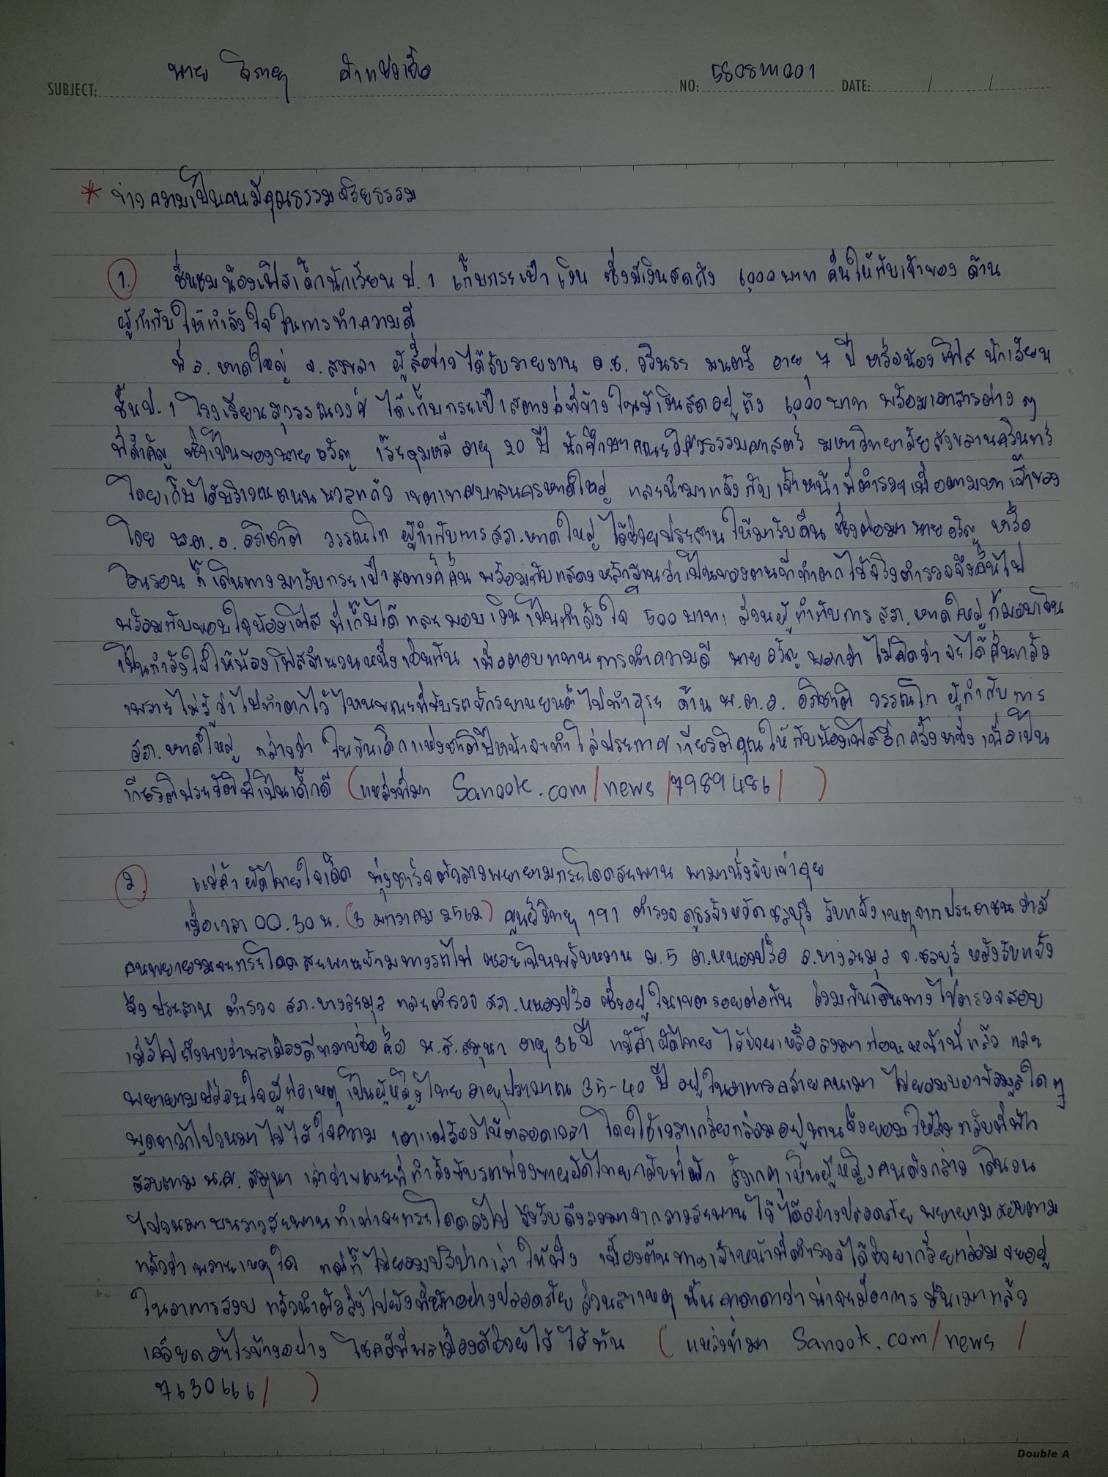 นาย จิรายุ
SUBJECT: NO: 5808m001 DATE: / /
* ข่าวความเป็นคนมีคุณธรรมจริยธรรม
1. ชื่นชมน้องเฟิสเด็กนักเรียน ป.1 เก็บกระเป๋าเงิน ซึ่งมีเงินสดถึง 6,000 บาท คืนให้กับเจ้าของ ด้าน
ผู้กำกับให้กำลังใจในการทำความดี
ที่ อ.หาดใหญ่ จ.สงขลา ผู้สื่อข่าวได้รับรายงาน ด.ช. วรินธร มนตรี อายุ 7 ปี หรือน้องเฟิส นักเรียน
ชั้นป.1 โรงเรียนสุวรรณวงศ์ ได้เก็บกระเป๋าสตางค์ที่ข้างในมีเงินสดอยู่ถึง 6,000 บาท พร้อมเอกสารต่าง ๆ
ที่สำคัญ ซึ่งเป็นของนาย อายุ 20 ปี นักศึกษาคณะวิศวกรรมศาสตร์ มหาวิทยาลัยสงขลานครินทร์
โดยเก็บได้บริเวณถนนนวลแก้ว เขตเทศบาลนครหาดใหญ่ และนำมาแจ้งกับเจ้าหน้าที่ตำรวจเพื่อตามหาเจ้าของ
โดย พ.ต.อ. วรรณโก ผู้กำกับการสภ.หาดใหญ่ ได้ช่วยประสานให้มารับคืน ซึ่งต่อมา นาย หรือ
ก็เดินทางมารับกระเป๋าสตางค์คืน พร้อมกับแสดงหลักฐานว่าเป็นของตนที่ทำตกไว้จริงตำรวจจึงคืนไป
พร้อมกับขอบใจน้องเฟิส ที่เก็บได้ และมอบเงินเป็นกำลังใจ 500 บาท ส่วนผู้กำกับการ สภ.หาดใหญ่ก็มอบเงิน
เป็นกำลังใจให้น้องเฟิสจำนวนหนึ่งเช่นกัน เพื่อตอบแทนการทำความดี นาย บอกว่า ไม่คิดว่าจะได้คืนแล้ว
เพราะไม่รู้ว่าไปทำตกไว้ไหนขณะที่ขับรถจักรยานยนต์ไปทำธุระ ด้าน พ.ต.อ. วรรณโก ผู้กำกับการ
สภ.หาดใหญ่ กล่าวว่า ในวันเด็กแห่งชาติปีหน้าจะทำใบประกาศเกียรติคุณให้กับน้องเฟิสอีกครั้งหนึ่ง เพื่อเป็น
เกียรติประวัติที่เป็นเด็กดี (แหล่งที่มา Sanook.com/news/7989486/ )
2. แม่ค้าผัดไทยใจเด็ด พุ่งชาร์จตัวสาวพยายามกระโดดสะพาน พามานั่งจับเข่าคุย
เมื่อเวลา 00.30 น. (3 มกราคม 2562) ศูนย์วิทยุ 191 ตำรวจภูธรจังหวัดชลบุรี รับแจ้งเหตุจากประชาชนว่ามี
คนพยายามจะกระโดดสะพานข้ามทางรถไฟ ซอยเนินพลับหวาน ม.5 ต.หนองปรือ อ.บางละมุง จ.ชลบุรี หลังรับแจ้ง
จึงประสาน ตำรวจ สภ.บางละมุง และตำรวจ สภ.หนองปรือ ซึ่งอยู่ในเขตรอยต่อกัน ร่วมกันเดินทางไปตรวจสอบ
เมื่อไปถึงพบว่าพลเมืองดีทราบชื่อคือ น.ส.สมุนา อายุ 36 ปี แม่ค้าผัดไทย ได้ช่วยเหลือลงมาก่อนหน้านี้แล้ว และ
พยายามปลอบใจผู้ก่อเหตุ เป็นผู้หญิงไทย อายุประมาณ 35-40 ปี อยู่ในอาการคล้ายคนเมา ไม่ยอมบอกข้อมูลใดๆ
พูดจาวกไปวนมา ไม่ได้ใจความ เอาแต่ร้องไห้ตลอดเวลา โดยใช้เวลาเกลี้ยกล่อมอยู่นานจึงยอมให้ส่งกลับที่พัก
สอบถาม น.ส. สมุนา เล่าว่าขณะที่กำลังขับรถพ่วงขายผัดไทยกลับที่พัก สังเกตเห็นผู้หญิงคนดังกล่าว เดินวน
ไปวนมา บนราวสะพานทำท่าจะกระโดดลงไป จึงรีบดึงลงมาจากราวสะพานไว้ได้อย่างปลอดภัย พยายามสอบถาม
แล้วว่า เพราะเหตุใด แต่ก็ไม่ยอมปริปากเล่าให้ฟัง เบื้องต้นทางเจ้าหน้าที่ตำรวจได้ช่วยเกลี้ยกล่อม จนอยู่
ในอาการสงบ แล้วนำตัวส่งไปยังที่พักอย่างปลอดภัย ส่วนสาเหตุ นั้น คาดเดาว่าน่าจะมีอาการมึนเมาแล้ว
เครียดอะไรบางอย่าง โชคดีที่พลเมืองดีช่วยไว้ได้ทัน ( แหล่งที่มา Sanook.com/news /
7630666/ )
Double A